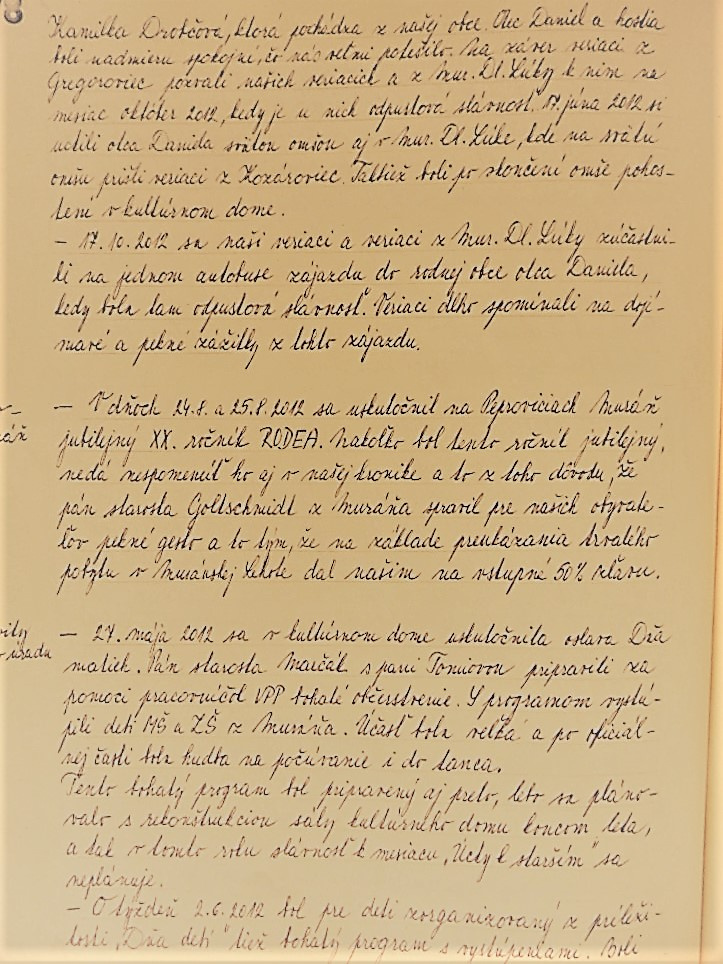 Kamilka Drobčová, ktorá pochádza z našej obce. Otec Daniel a hostia
boli nadmieru spokojní, čo nás veľmi potešilo. Na záver veriaci z
Gregoroviec pozvali našich veriacich a z Mur. Dl. Lúky k nim na
mesiac október 2012, kedy je u nich odpustová slávnosť. 17. júna 2012 si
uctili otca Daniela svätou omšou aj v Mur. Dl. Lúke, kde na svätú
omšu prišli veriaci z Kozároviec. Taktiež boli po skončení omše pohos-
tení v kultúrnom dome.
– 17.10.2012 sa naši veriaci a veriaci z Mur. Dl. Lúky zúčastni-
li na jednom autobuse zájazdu do rodnej obce otca Daniela,
kedy bola tam odpustová slávnosť. Veriaci dlho spomínali na dojí-
mavé a pekné zážitky z tohto zájazdu.
– V dňoch 24.8. a 25.8.2012 sa uskutočnil na Peproviciach Muráň
jubilejný XX. ročník RODEA. Nakoľko bol tento ročník jubilejný,
nedá nespomenúť ho aj v našej kronike a to z toho dôvodu, že
pán starosta Goltschmidt z Muráňa spravil pre našich obyvate-
ľov pekné gesto a to tým, že na základe preukázania trvalého
pobytu v Muránskej Lehote dal našim na vstupné 50% zľavu.
– 27. mája 2012 sa v kultúrnom dome uskutočnila oslava Dňa
matiek. Pán starosta Marčák s pani Tomovou pripravili za
pomoci pracovníčok VPP bohaté občerstvenie. S programom vystú-
pili deti MŠ a ZŠ z Muráňa. Účasť bola veľká a po oficiál-
nej časti bola hudba na počúvanie i do tanca.
Tento bohatý program bol pripravený aj preto, lebo sa pláno-
valo s rekonštrukciou sály kultúrneho domu koncom leta,
a tak v tomto roku slávnosť k mesiacu „Úcty k starším" sa
neplánuje.
– O týždeň 2.6.2012 bol pre deti zorganizovaný z príleži-
tosti „Dňa detí" tiež bohatý program s vystúpeniami. Boli